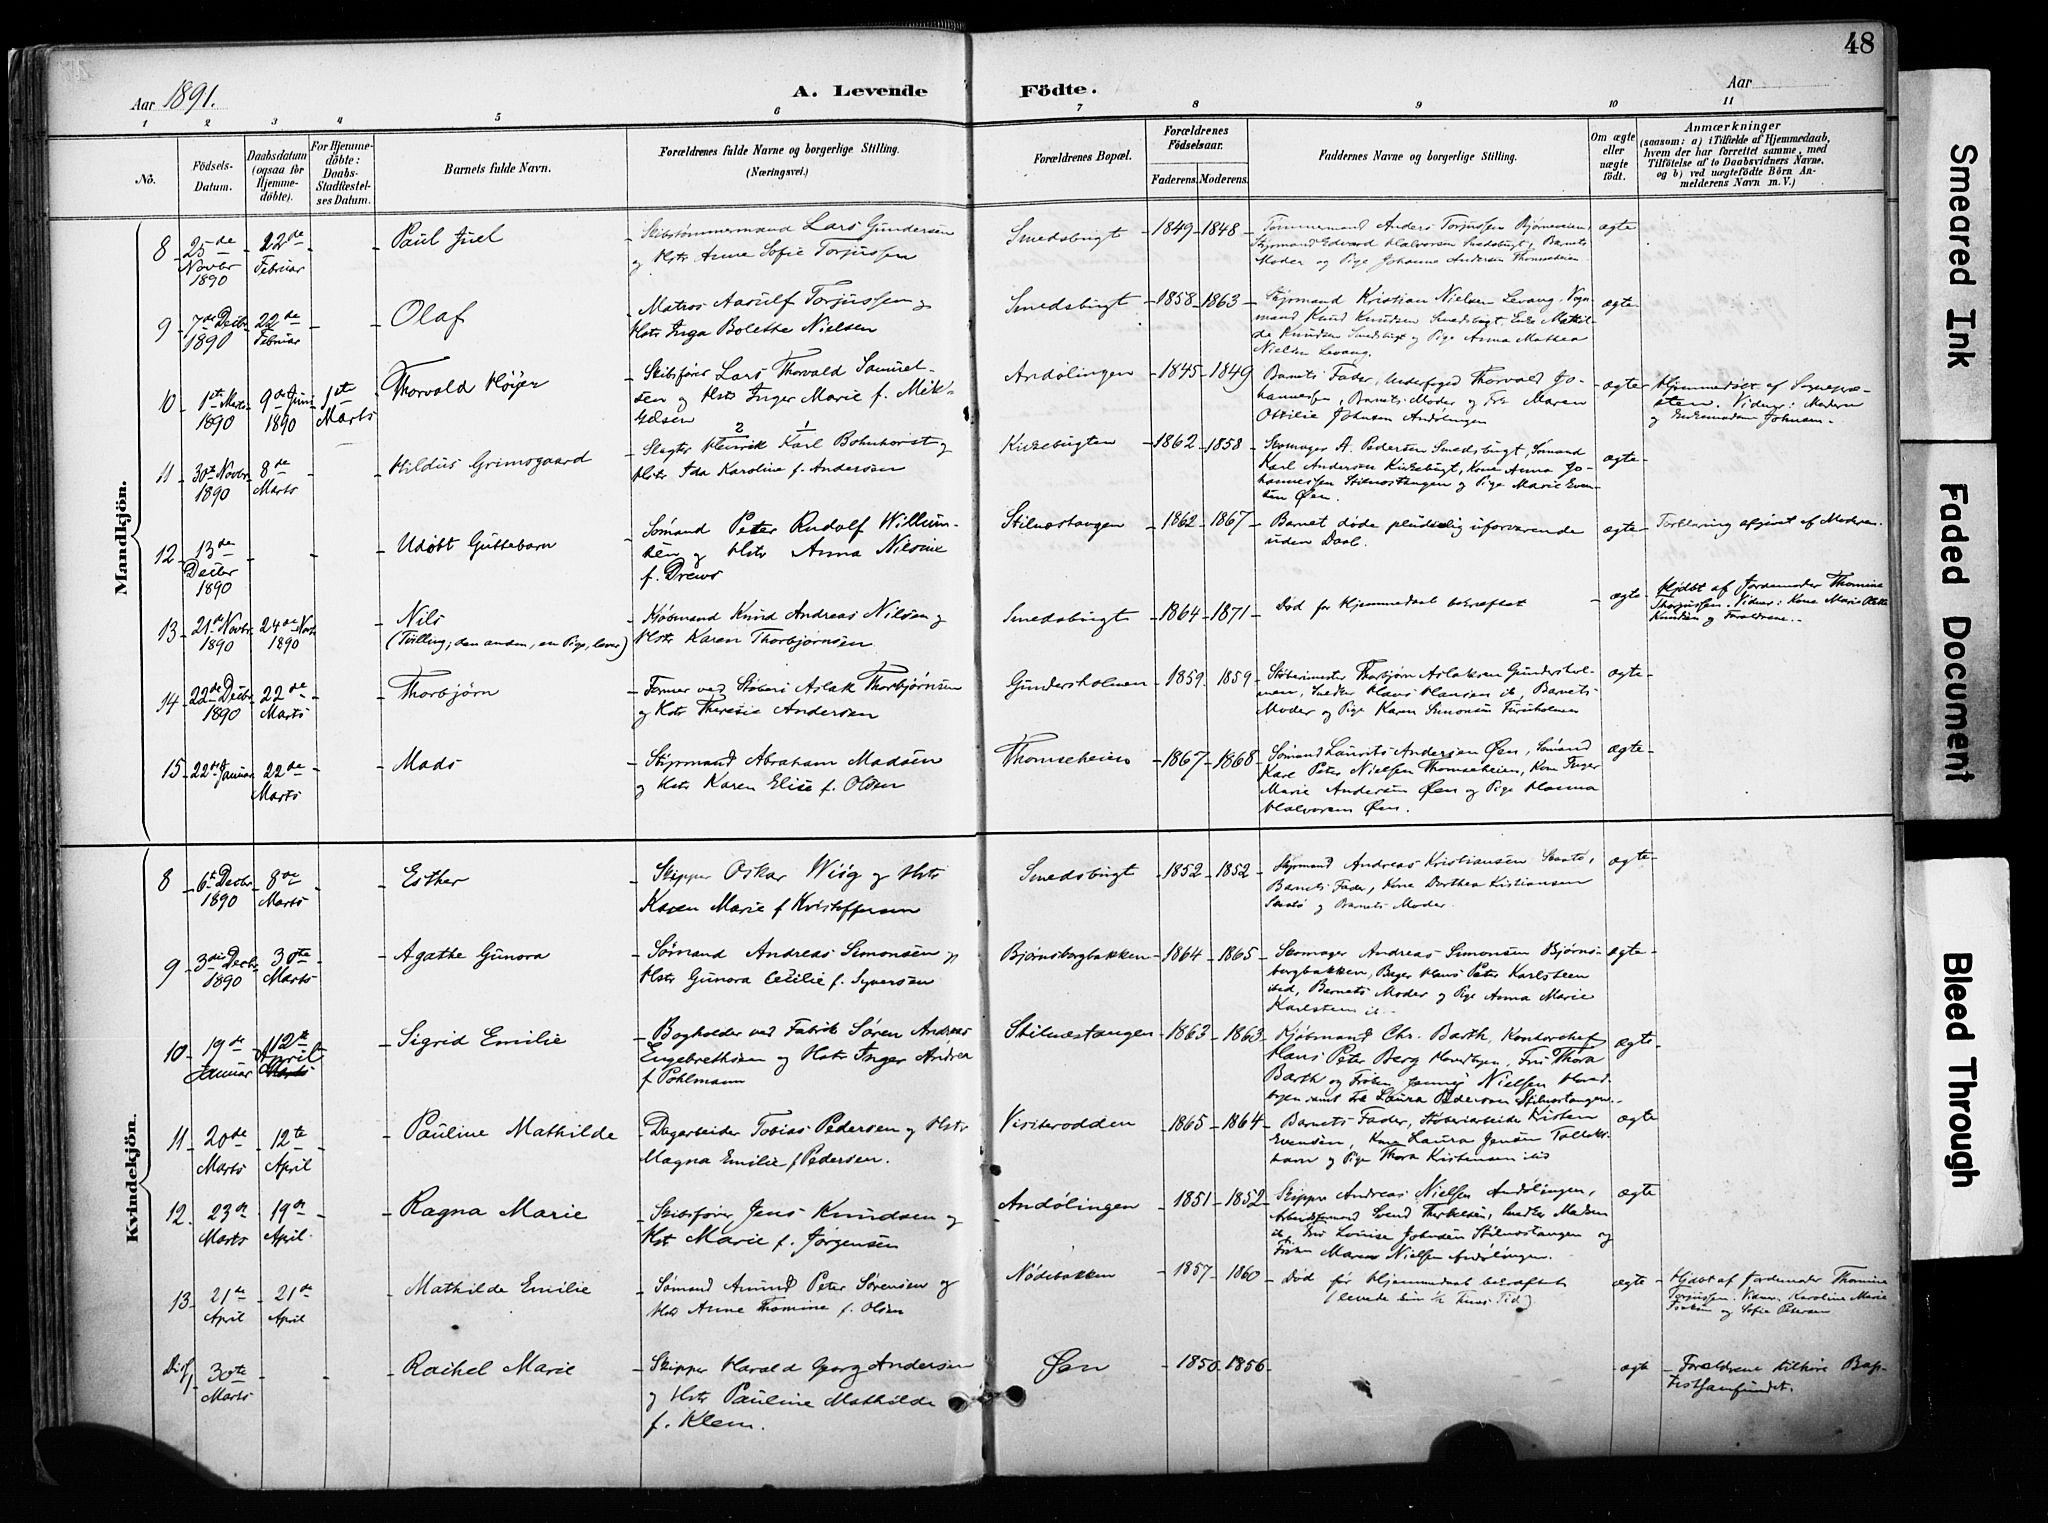 48
Aar 1891.
A. Levende Födte.
Aar
1 2 3 4 5 6 7 8 9 10 11
No.
Födsels-Datum.
Daabsdatum (ogsaa for Hjemmedöbte).
For Hjemmedöbte: Daabs-Stadfæstelses Datum.
Barnets fulde Navn.
Forældrenes fulde Navne og borgerlige Stilling.
(Næringsvei.)
Forældrenes Bopæl.
Forældrenes Födselsaar.
Faderens. Moderens.
Faddernes Navne og borgerlige Stilling.
Om ægte eller uægte födt.
Anmærkninger
(saasom: a) i Tilfælde af Hjemmedaab, hvem der har forrettet samme, med Tilföielse af to Daabsvidners Navne, og b) ved uægtefödte Börn Anmelderens Navn m. V.)
Mandkjön.
8 25de Novbr 1890 22de Februar Paul Juel Skibstømmermand Lars Gundersen og Hstr Anne Sofie Torjussen Smedsbugt 1849 1848 Tømmermand Anders Torjussen, Styrmand Edvard Halvorsen Smedsbugt, Barnets Moder og Pige Johanne Andersen Thomseheien ægte
9 7de Decbr 1890 22de Februar Olaf Matros Aasulf Torjussen og Hstr Inga Bolette Nielsen Smedsbugt 1858 1863 Styrmand Kristian Nielsen Levang, Vognmand Knud Knudsen Smedsbugt, Enke Mathilde Knudsen Smedsbugt og Pige Anna Mathea Nielsen Levang. ægte
10 1ste Marts 1890 9de Juni 1890 1ste Marts Thorvald Høyer Skibsfører Lars Thorvald Samuelsen og Hstr Inger Marie f. Mikkelsen Andølingen 1845 1849 Barnets Fader, Underfoged Thorvald Johannesen, Barnets Moder og Frk Maren Ottilie Johnsen Andølingen ægte Hjemmedøbt af Sognepræsten. Vidner: Moderen og Enkemadam Johnsen.
11 30te Novbr 1890 8de Marts Hildus Grimsgaard Slagter Henrik Karl Bohnhorst og Hstr Ida Karoline f. Andersen Kirkebugten 1862 1858 Skomager A. Pedersen Smedsbugt, Sømand Karl Andersen Kirkebugt, Kone Anna Johannessen Stilnestangen og Pige Marie Evensen Øen. ægte
12 13de Decbr 1890 Udøbt Guttebarn Sømand Peter Rudolf Willumsen og Hstr Anna Nilsine f. Drews Stilnestangen 1862 1867 Barnet døde pludselig uforvarende uden Daab. ægte Forklaring afgivet af Moderen.
13 21de Novbr 1890 24de Novbr 1890 Nils (Tvilling; den anden, en Pige, lever) Kjøbmand Knud Andreas Nilsen og Hstr Karen Thorbjørnsen Smedsbugt 1864 1871 Død før Hjemmedaab bekræftet ægte Hjdbt af Jordemoder Thomine Thorjussen. Vidner: Kone Marie Knudsen og Forældrene.
14 22de Decbr 1890 22de Marts Thorbjørn Former ved Støberi Aslak Thorbjørnsen og Hstr Theresie Andersen Gundersholmen 1859 1859 Støberimester Thorbjørn Aslaksen Gundersholmen, Snedker Hans Hansen ib, Barnets Moder og Pige Karen Simonsen Furuholmen ægte
15 22de Januar 22de Marts Mads Styrmand Abraham Madsen og Hstr Karen Elise f. Olsen Thomseheien 1867 1868 Sømand Laurits Andersen Øen, Sømand Karl Peter Nielsen Thomseheien, Kone Inger Marie Andersen Øen og Pige Hanna Halvorsen Øen. ægte
Kvindekjön.
8 6te Decbr 1890 8de Marts Esther Skipper Oskar Wiig og Hstr Karen Marie f. Kristoffersen Smedsbugt 1852 1852 Styrmand Andreas Kristiansen, Barnets Fader, Kone Dorthea Kristiansen og Barnets Moder. ægte
9 3die Decbr 1890 30te Marts Agathe Gunora Sømand Andreas Simonsen og Hstr Gunora Cecilie f. Syversen Bjørnsborgbakken 1864 1865 Skomager Andreas Simonsen Bjørnsborgbakken, Bager Hans Peter Karlsteen ibid, Barnets Moder og Pige Anna Marie Karlsteen ib. ægte
10 19de Januar 12te April Sigrid Emilie Bogholder ved Fabrik Søren Andreas Engebrethsen og Hstr Inger Andrea f. Pohlmann Stilnestangen 1863 1863 Kjøbmand Chr. Barth, Kontorchef Hans Peter Berg Hovedbyen, Fru Thora Barth og Frøken Jenny Nielsen Hovedbyen samt Frk Laura Pedersen Stilnestangen. ægte
11 20de Marts 12te April Pauline Mathilde Dagarbeider Tobias Pedersen og Hstr Magna Emilie f. Pedersen. Visiterodden 1865 1864 Barnets Fader, Støberiarbeider Kristen Evensen, Kone Laura Jensen Tallakshavn og Pige Thora Kristensen ibid ægte
12 23de Marts 19de April Ragna Marie Skibsfører Jens Knudsen og Hstr Marie f. Jørgensen Andølingen 1851 1852 Skipper Andreas Nielsen Andølingen, Arbeidsmand Svend Therkelsen, Snedker Madsen ib, Fru Louise Johnsen Stilnestangen og Frøken Maren Nielsen Andølingen. ægte
13 21de April 21de April Mathilde Emilie Sømand Amund Peter Sørensen og Hstr Anne Thomine f. Olsen Nødebakken 1857 1860 Død før Hjemmedaab bekræftet (levede kun ½ Times Tid). ægte Hjdbt af Jordemoder Thomine Torjussen. Vidner: Karoline Marie og Sofie Petersen
Diss 1 30te Marts Rachel Marie Skipper Harald Georg Andersen og Hstr Pauline Mathilde f. Klem. Øen 1850 1856 ægte Forældrene tilhøre Baptistsamfundet.
Smeared Ink
Faded Document
Bleed Through